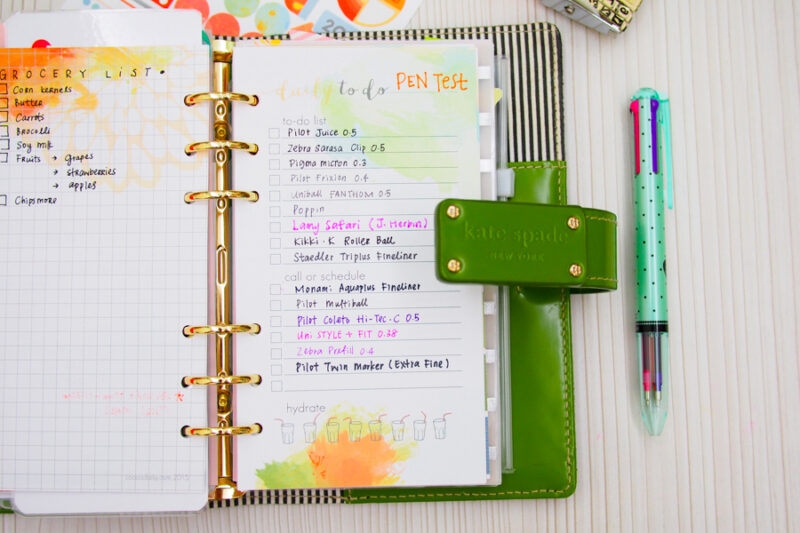 GROCERY LIST.
Corn kernels
Butter
Carrots
Brocolli
Soy milk
Fruits → grapes
→ strawberries
→ apples
Chipsmore
daily to do
PEN TEST
to-do list
Pilot Juice 0.5
Zebra Sarasa Clip 0.5
Pigma micron 0.3
Pilot Frixion 0.4
Uniball FANTHOM 0.5
Poppin
Lamy Safari (J. Herbin)
Kikki.K Roller Ball
Staedler Triplus Fineliner
call or schedule
Monami Aquaplus Fineliner
Pilot multiball
Pilot Coleto Hi-Tec.C 0.5
Uni STYLE + FIT 0.38
Zebra Prefill 0.4
Pilot Twin Marker (Extra Fine)
hydrate
kate spade
NEW YORK